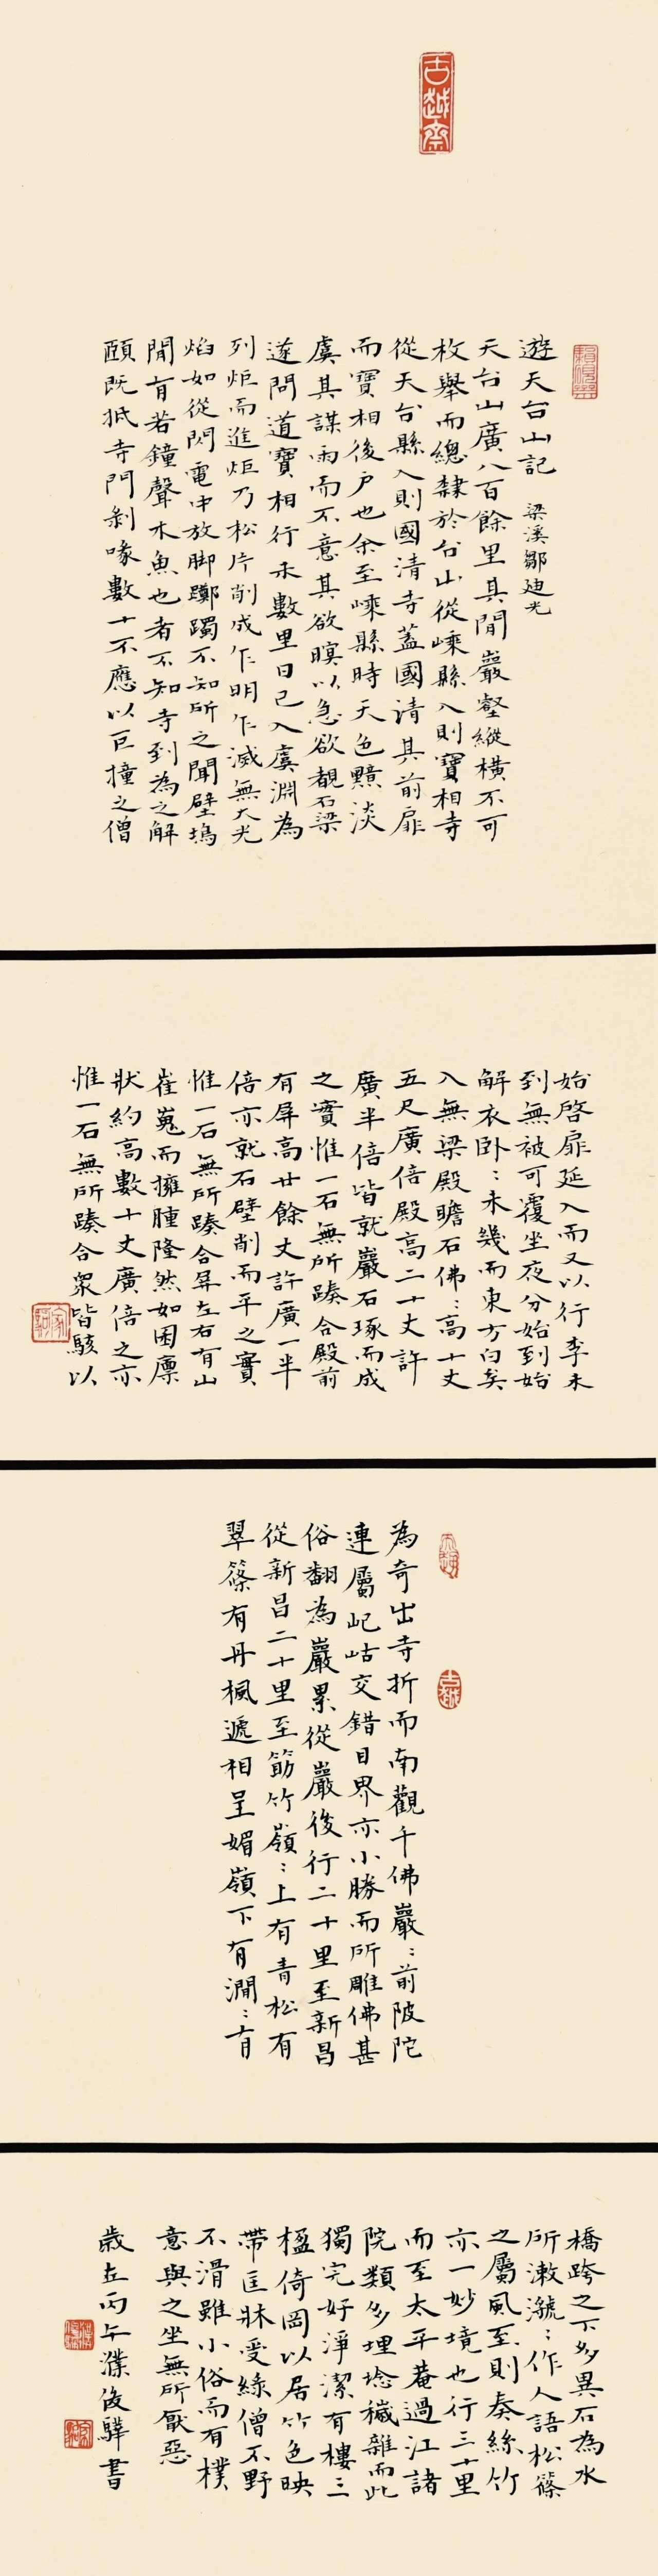 古越齋
遊天台山記 梁溪鄒迪光
天台山廣八百餘里其間巖壑縱橫不可
枚舉而總隸於台山從嵊縣入則寶相寺
從天台縣入則國清寺蓋國清其前扉
而寶相後戶也余至嵊縣時天色黯淡
虞其謀雨而不意其欲暝以急欲覩石梁
遂問道寶相行未數里日已入虞淵為
列炬而進炬乃松片削成乍明乍滅無大光
焰如從閃電中放脚躑躅不知所之聞壁塢
間有若鐘聲木魚也者不知寺到為之解
頤既抵寺門剝啄數十不應以巨撞之僧
始啓扉延入而又以行李未
到無被可覆坐夜分始到始
解衣卧：未幾而東方白矣
入無梁殿瞻石佛：高十丈
五尺廣倍殿高二十丈許
廣半倍皆就巖石琢而成
之實惟一石無所踳合殿前
有屏高廿餘丈許廣一半
倍亦就石壁削而平之實
惟一石無所踳合屏左右有山
崔嵬而擁腫隆然如囷廩
狀約高數十丈廣倍之亦
惟一石無所踳合衆皆駭以
為奇出寺折而南觀千佛巖：前陂陀
連屬屺岵交錯目界亦小勝而所雕佛甚
俗翻為巖累從巖後行二十里至新昌
從新昌二十里至筋竹嶺：上有青松有
翠篠有丹楓遞相呈媚嶺下有澗：有
橋跨之下多異石為水
所漱㶁：作人語松篠
之屬風至則奏絲竹
亦一妙境也行三十里
而至太平菴過江諸
院類多埋堍穢雜而此
獨完好淨潔有樓三
楹倚岡以居竹色映
帶匡牀受綠僧不野
不滑雖小俗而有樸
意與之坐無所厭惡
歲在丙午濮後驊書